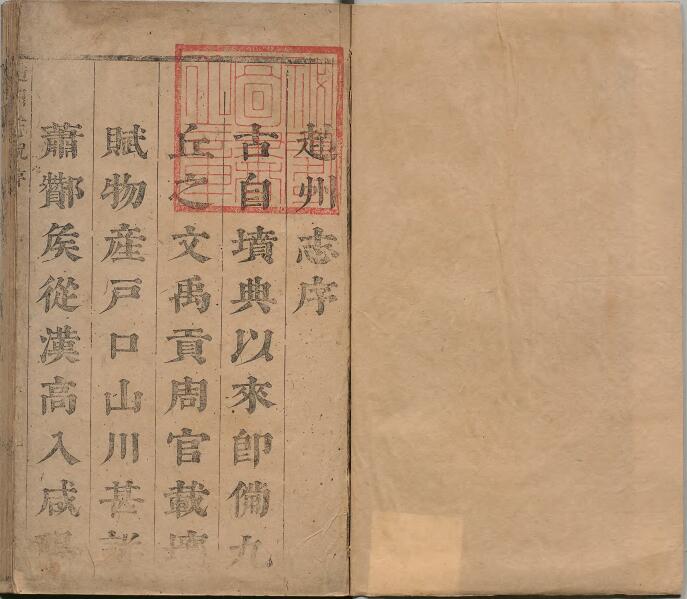 趙州志序
古自墳典以來卽備九
丘之文禹貢周官載壤
賦物産戸口山川甚詳
蕭酇矦從漢高入咸陽